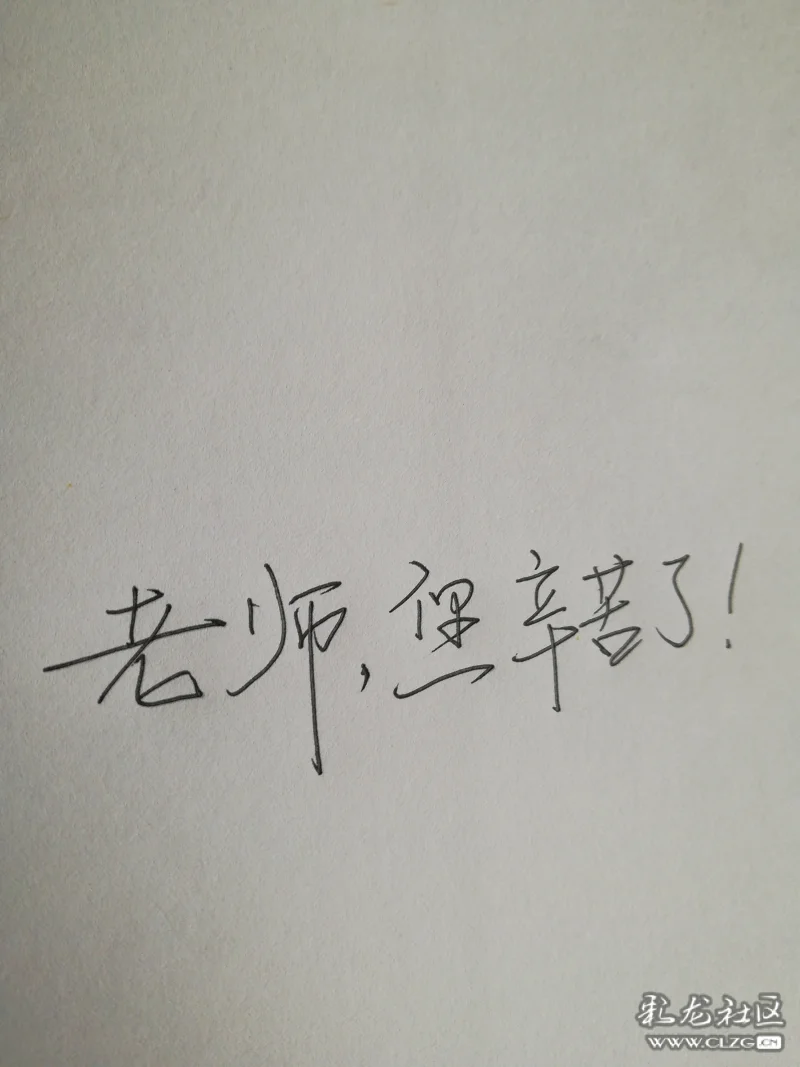 老师,您辛苦了!
化龙社区
WWW.CLZG.CN